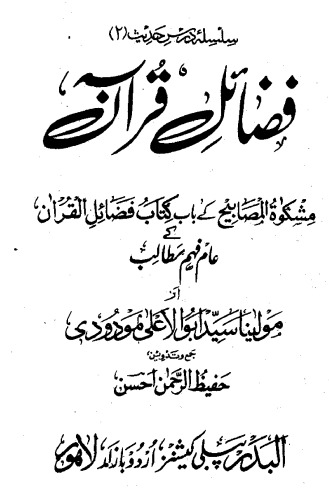 سلسلۂ درسِ حدیث (۲)
فضائلِ قرآن
مشکوٰۃ المصابیح کے باب کتاب فضائل القرآن
کے
عام فہم مطالب
از
مولینا سید ابوالاعلیٰ مودودی
جمع و تدوین:
حفیظ الرحمٰن احسن
البدر پبلی کیشنز، اردو بازار لاہور